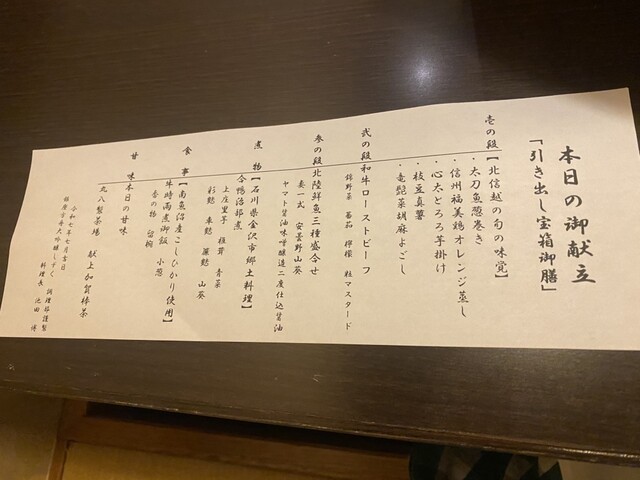 本日の御献立
「引き出し宝箱御膳」
壱の段【北信越の旬の味覚】
・太刀魚葱巻き
・信州福美鶏オレンジ蒸し
・心太とろろ芋掛け
・枝豆真薯
・竜髭菜胡麻よごし
弐の段 和牛ローストビーフ
錦野菜 蕃茄 檸檬 粒マスタード
参の段 北陸鮮魚三種盛合せ
妻一式 安曇野山葵
ヤマト醤油味噌醸造二度仕込醤油
煮物【石川県金沢市郷土料理】
合鴨治部煮
上庄里芋 椎茸 青菜
彩麩 車麩 簾麩 山葵
食事【南魚沼産こしひかり使用】
牛時雨煮御飯 小葱
香の物 留椀
甘味 本日の甘味
丸八製茶場 献上加賀棒茶
令和七年七月吉日
銀座古舟大吟醸しずく 調理部謹製
料理長 池田 博